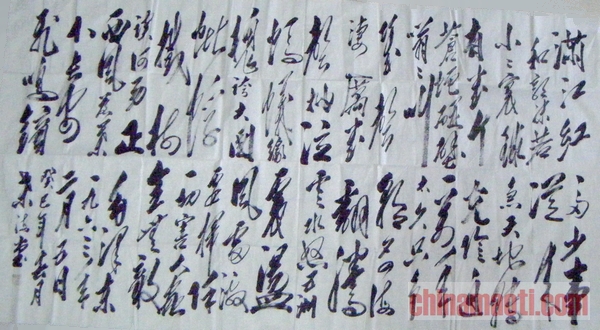 满江红
和郭沫若
小小寰球
有几个
苍蝇碰壁
嗡嗡叫
几声
凄厉几
声抽泣
蚂蚁缘
槐夸大国
蚍蜉
撼树
谈何易正
西风落叶
下长安
飞鸣镝
多少事
从来
急天地转
光阴迫
一万年
太久只争
朝夕四海
翻腾
云水怒五洲
震荡
风雷激
要扫除
一切害人虫
全无敌
毛泽东
一九六三年
二月五日
癸巳年
chinamaoti.com